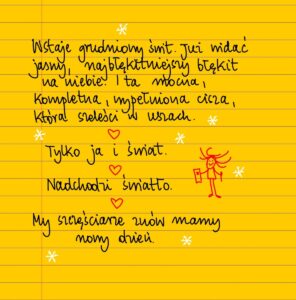 Wstaje grudniowy świt. Już widać
jasny, najbłękitniejszy błękit
na niebie. I ta mocna,
kompletna, wypełniona cisza,
która szeleści w uszach.
Tylko ja i świat.
Nadchodzi światło.
My szczęściarze znów mamy
nowy dzień.